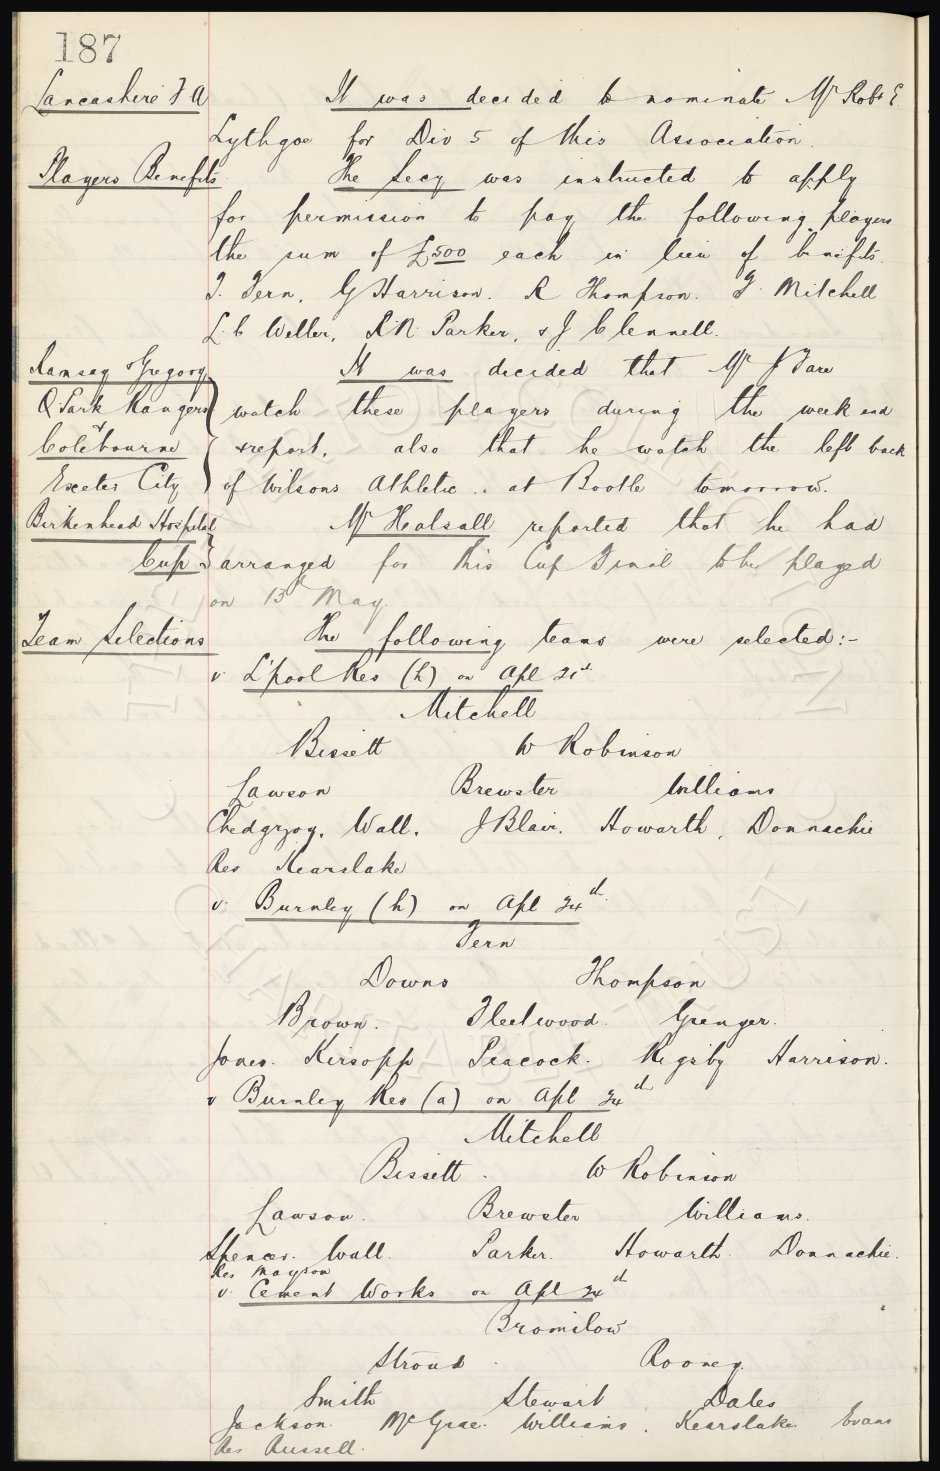 187
Lancashire F A It was decided to nominate Mr Robt E
Lythgoe for Div 5 of this Association.
Players Benefits The Secy was instructed to apply
for permission to pay the following players
the sum of £500 each in lieu of benefits.
T. Fern, G Harrison. R Thompson. F. Mitchell
L. C Weller, R.N. Parker, & J Clennell.
Ramsay & Gregory It was decided that Mr J Fare
Q Park Rangers watch these players during the week end
& Colebourne & report, also that he watch the left back
Exeter City of Wilsons Athletic .. at Bootle tomorrow.
Birkenhead Hospital Mr Halsall reported that he had
Cup arranged for this Cup Final to be played
on 13th May.
Team Selections The following teams were selected:-
v L'pool Res (h) on Apl 21st
Mitchell
Bissett W Robinson
Lawson Brewster Williams
Chedgzoy, Wall, J Blair. Howarth, Donnachie
Res Kearslake
v. Burnley (h) on Apl 24th
Fern
Downs Thompson
Brown. Fleetwood. Grenyer.
Jones. Kirsopp Peacock. Rigsby Harrison.
v Burnley Res (a) on Apl 24th
Mitchell
Bissett. W Robinson
Lawson. Brewster Williams.
Spencer. Wall. Parker. Howarth. Donnachie.
Res Mayson
v. Cement Works on Apl 24th
Bromilow
Stroud. Rooney.
Smith Stewart Dales
Jackson. McGrae. Williams. Kearslake. Evans
Res Russell.